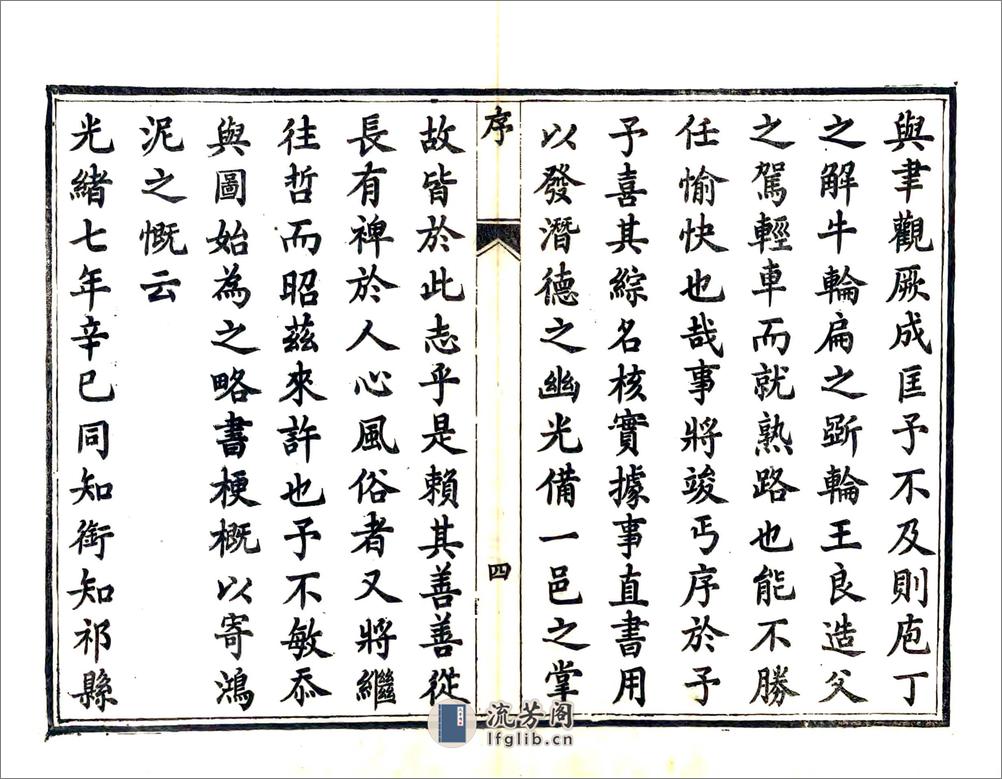 與聿觀厥成匡予不及則庖丁
之解牛輪扁之斲輪王良造父
之駕輕車而就熟路也能不勝
任愉快也哉事將竣丐序於予
予喜其綜名核實據事直書用
以發潛德之幽光備一邑之掌
序
四
故皆於此志乎是賴其善善從
長有裨於人心風俗者又將繼
往哲而昭茲來許也予不敏忝
與圖始為之略書梗概以寄鴻
泥之慨云
光緒七年辛巳同知銜知祁縣
流芳阁
lfglib.cn